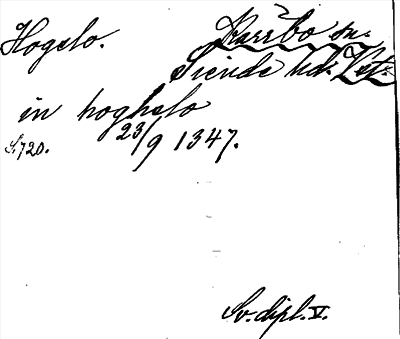 Hogslo. Kärrbo sn.
Siende hd. Vst.
in hoghslo
23/9 1347.
S. 720.
Sv. dipl. V.